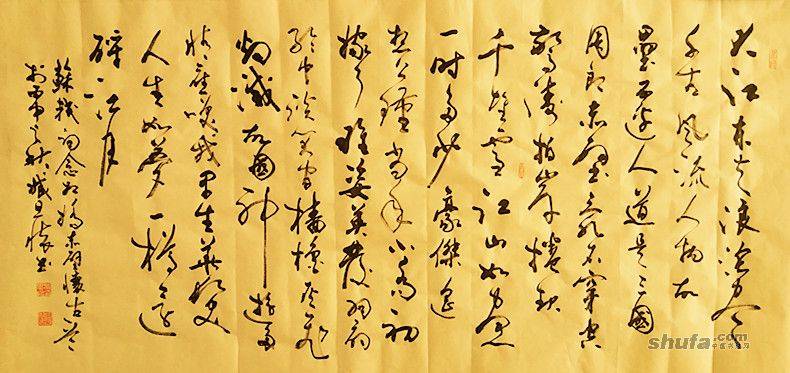 大江東去浪淘盡
千古風流人物故
壘西邊人道是三國
周郎赤壁亂石穿空
驚濤拍岸捲起
千堆雪江山如畫
一時多少豪傑遙
想公瑾當年小喬初
嫁了雄姿英發羽扇
綸巾談笑間檣櫓灰飛
煙滅故國神遊多
情應笑我早生華髮
人生如夢一樽還
酹江月
蘇軾詞念奴嬌赤壁懷古
之秋
shufa.com